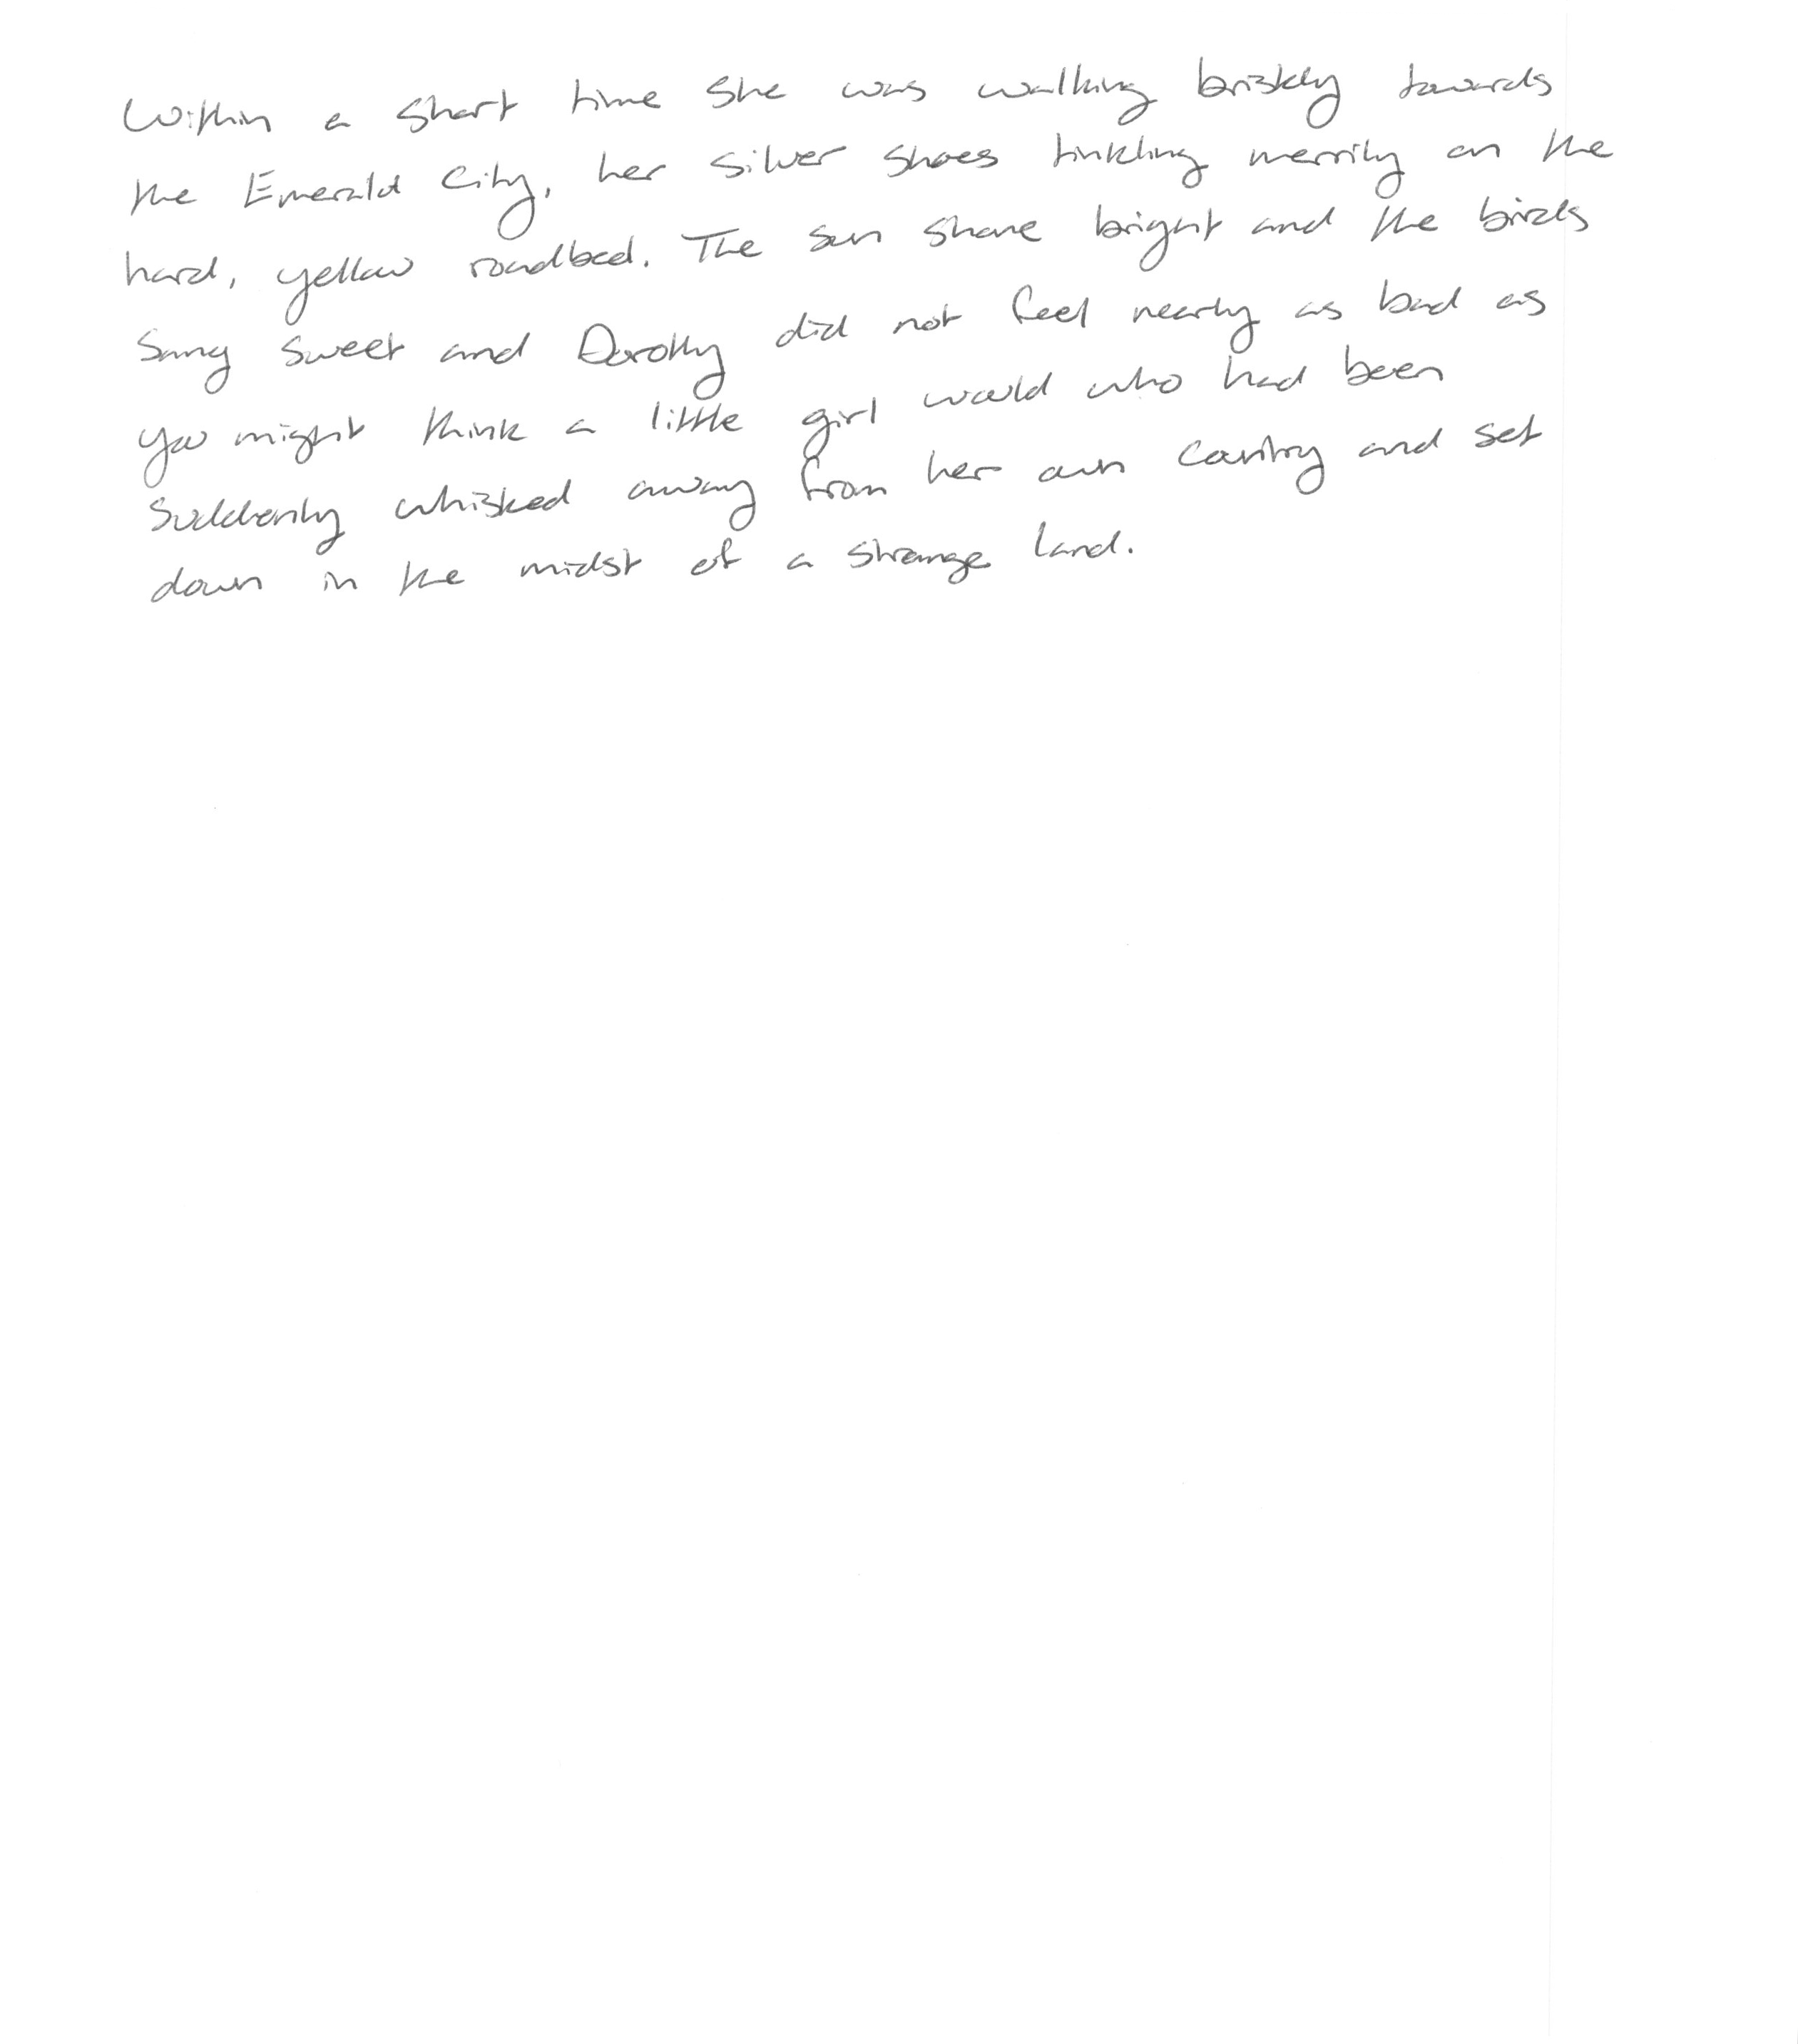 Within a short time she was walking briskly towards
the Emerald City, her silver shoes tinkling merrily on the
hard, yellow roadbed. The sun shone bright and the birds
sang sweet and Dorothy did not feel nearly as bad as
you might think a little girl would who had been
suddenly whisked away from her own country and set
down in the midst of a strange land.